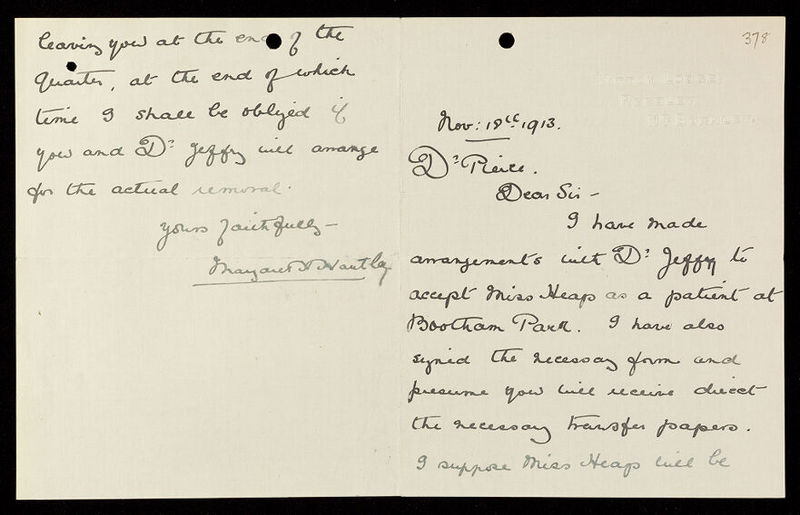 378
Nov: 18th 1913.
Dr Pierce.
Dear Sir -
I have made
arrangements with Dr Jeffrey to
accept Miss Heap as a patient at
Bootham Park. I have also
signed the necessary form and
presume you will receive direct
the necessary transfer papers.
I suppose Miss Heap will be
leaving you at the end of the
Quarter, at the end of which
time I shall be obliged if
you and Dr Jeffrey will arrange
for the actual removal.
Yours faithfully -
Margaret Hartley